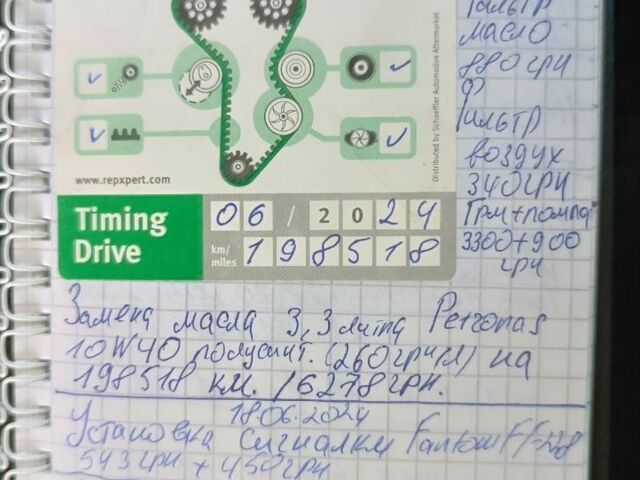 Фильтр
масло
880 грн
Ф
ильтр
воздух
340 грн
Грм+помпа
3300+900
грн
Distributed by Schaeffler Automotive Aftermarket
www.repxpert.com
Timing
Drive
06 / 2024
km/
miles
198518
Замена масла 3,3 литра Petronas
10W40 полусинт. (260грн/л) на
198518 км. /6278грн.
18.06.2024
Установка сигналки Fantom
543грн + 450грн